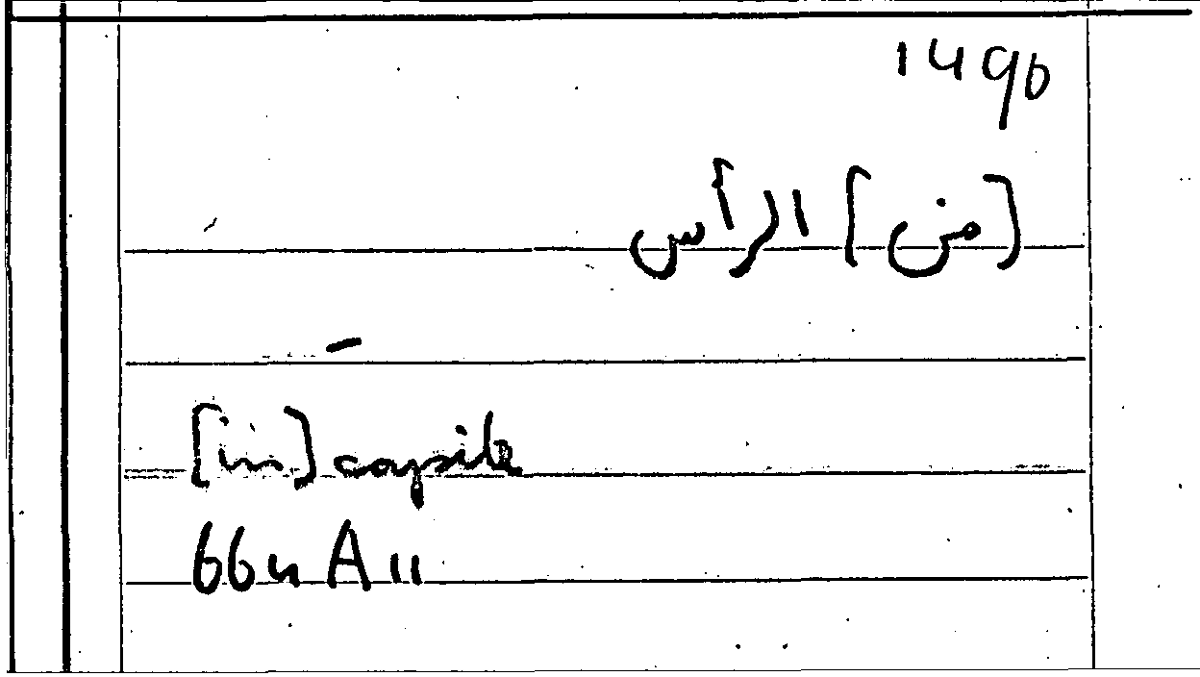 149b
[من] الرأس
–
[in] capite
664 A 11